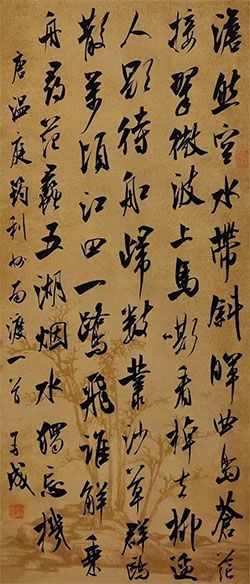 澹然空水帶斜暉曲島蒼茫
接翠微波上馬嘶看棹去柳邊
人歇待船歸數叢沙草群鷗
散萬頃江田一鷺飛誰解乘
舟尋范蠡五湖烟水獨忘機
唐溫庭筠利州南渡一首 子成